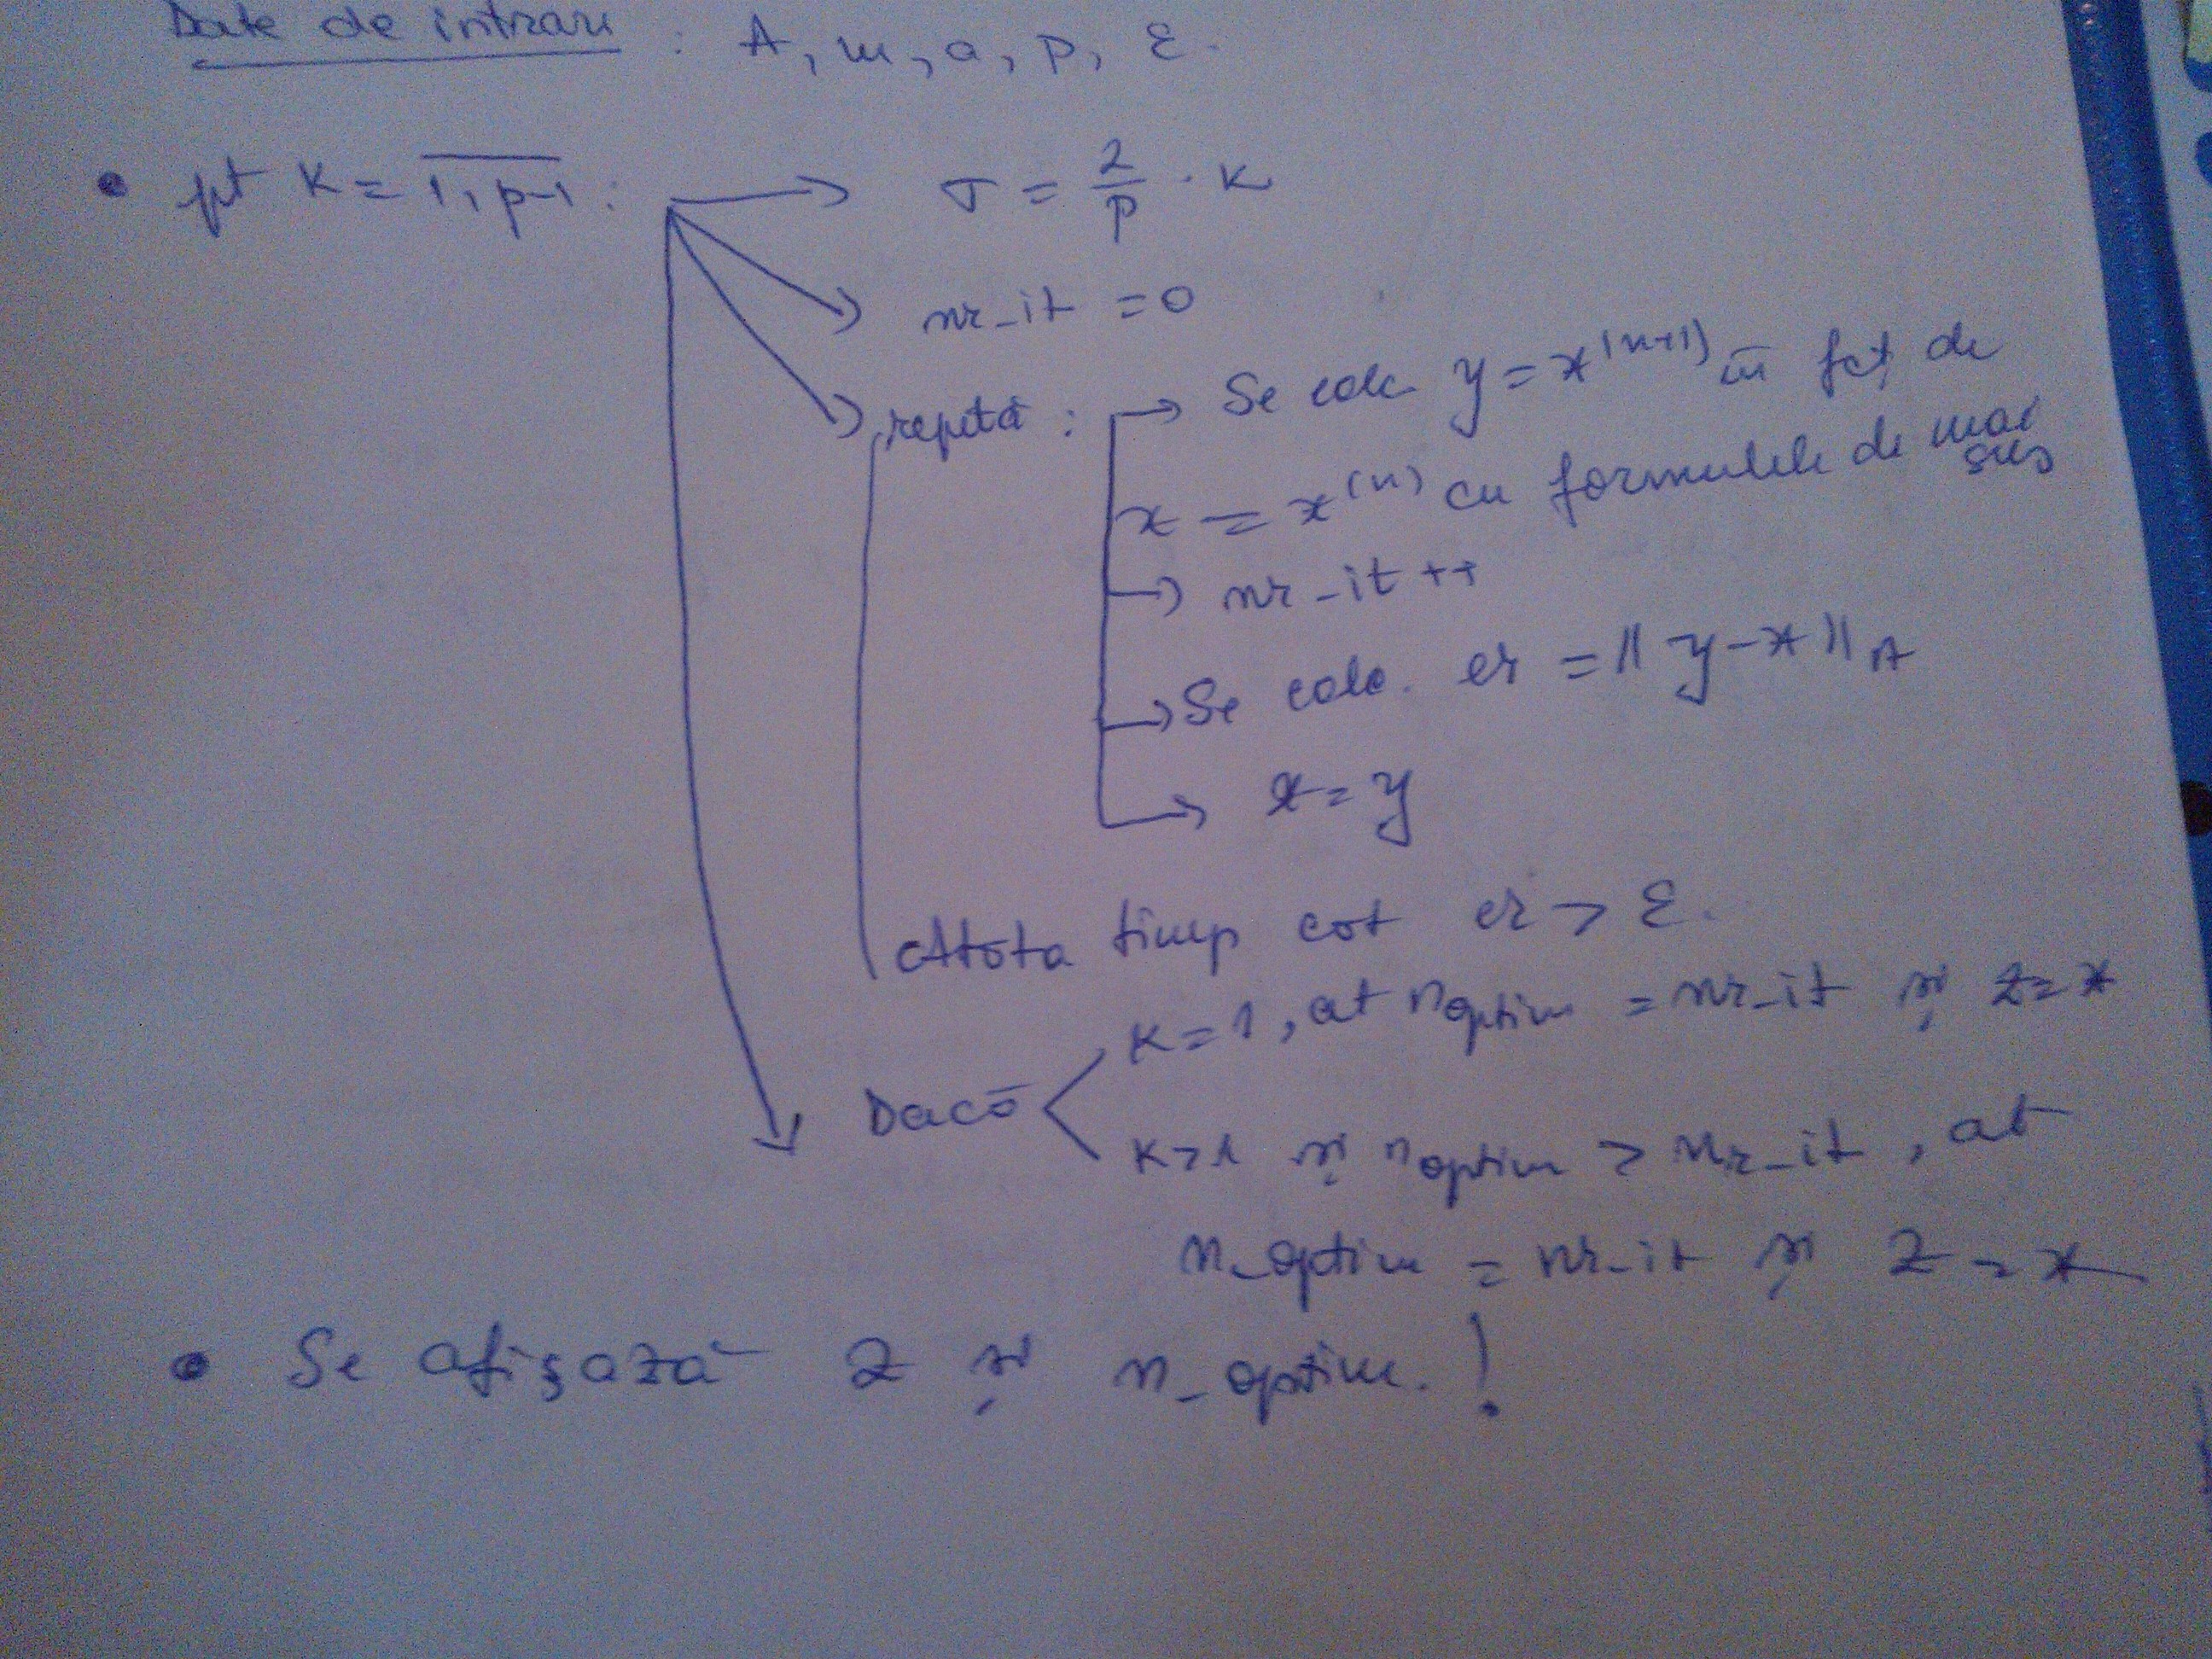 Date de intrare : A, m, a, p, ε.
• pt K = 1, p-1 : → σ = 2/p · K
→ nr_it = 0
→ repetă : → Se calc y = x^(n+1) în fcț de
x = x^(n) cu formulele de mai sus
→ nr_it ++
→ Se calc. er = || y - x ||_A
→ x = y
Atâta timp cât er > ε.
Dacă < K = 1, at n_optim = nr_it și z = x
K > 1 și n_optim > nr_it, at
n_optim = nr_it și z = x
• Se afișază z și n_optim. !